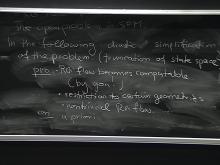 The
In the following drastic simplification
of the problem (truncation of state space)
pro · RG flow becomes computable
(by you!)
· restriction to certain geometries
· nontrivial RG flow.
a priori